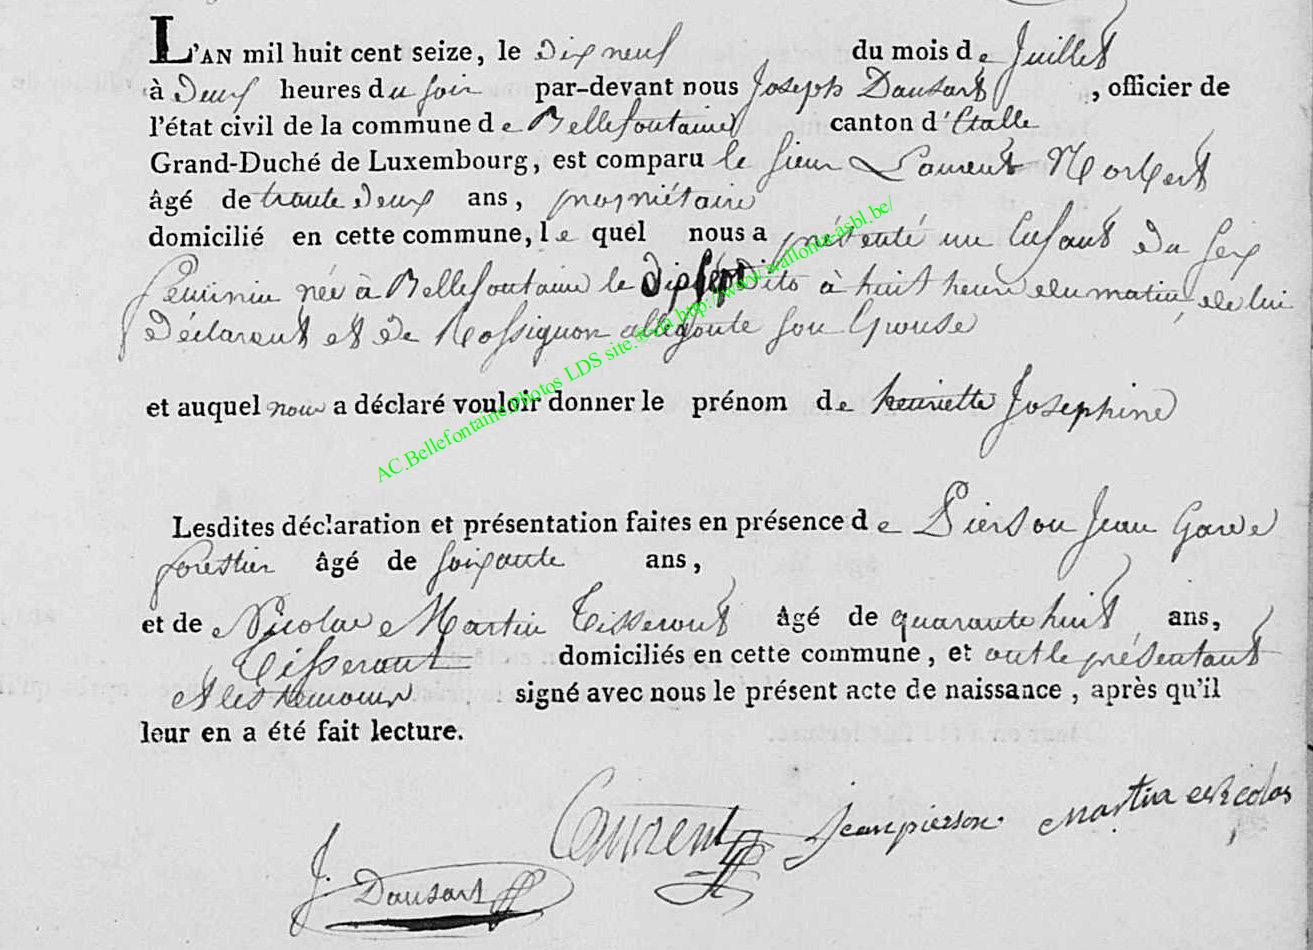 L'AN mil huit cent seize, le dix neuf du mois de Juillet
à Deux heures du soir par-devant nous Joseph Dausart, officier de
l'état civil de la commune de Bellefontaine canton d'Etalle
Grand-Duché de Luxembourg, est comparu le sieur Laurent Norbert
âgé de trante deux ans, propriétaire
domicilié en cette commune, le quel nous a présenté un Enfant du sex
feminin née à Bellefontaine le dix sept dito à huit heure du matin, de lui
déclarent et de Rossignon son Epouse
et auquel nous a déclaré vouloir donner le prénom de henriette Josephine
Lesdites déclaration et présentation faites en présence de Pierson Jean Garde
forestier âgé de soixante ans,
et de Nicolas Martin Tisserant âgé de quarante huit ans,
Tisserant domiciliés en cette commune, et ont le présentant
et les temoins signé avec nous le présent acte de naissance, après qu'il
leur en a été fait lecture.
Laurent jean pierson martin nicolas
J. Dausart
AC.Bellefontaine.Photos LDS site. http://www.wallonia-asbl.be/